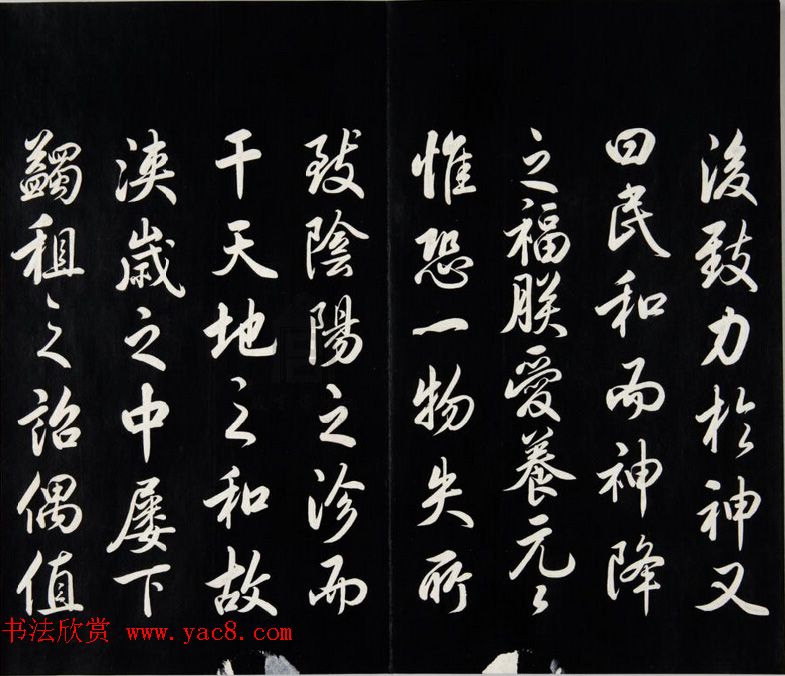 後致力於神又
曰民和而神降
之福朕愛養元〻
惟恐一物失所
致陰陽之沴而
干天地之和故
浹歲之中屢下
蠲租之詔偶值
书法欣赏 www.yac8.com